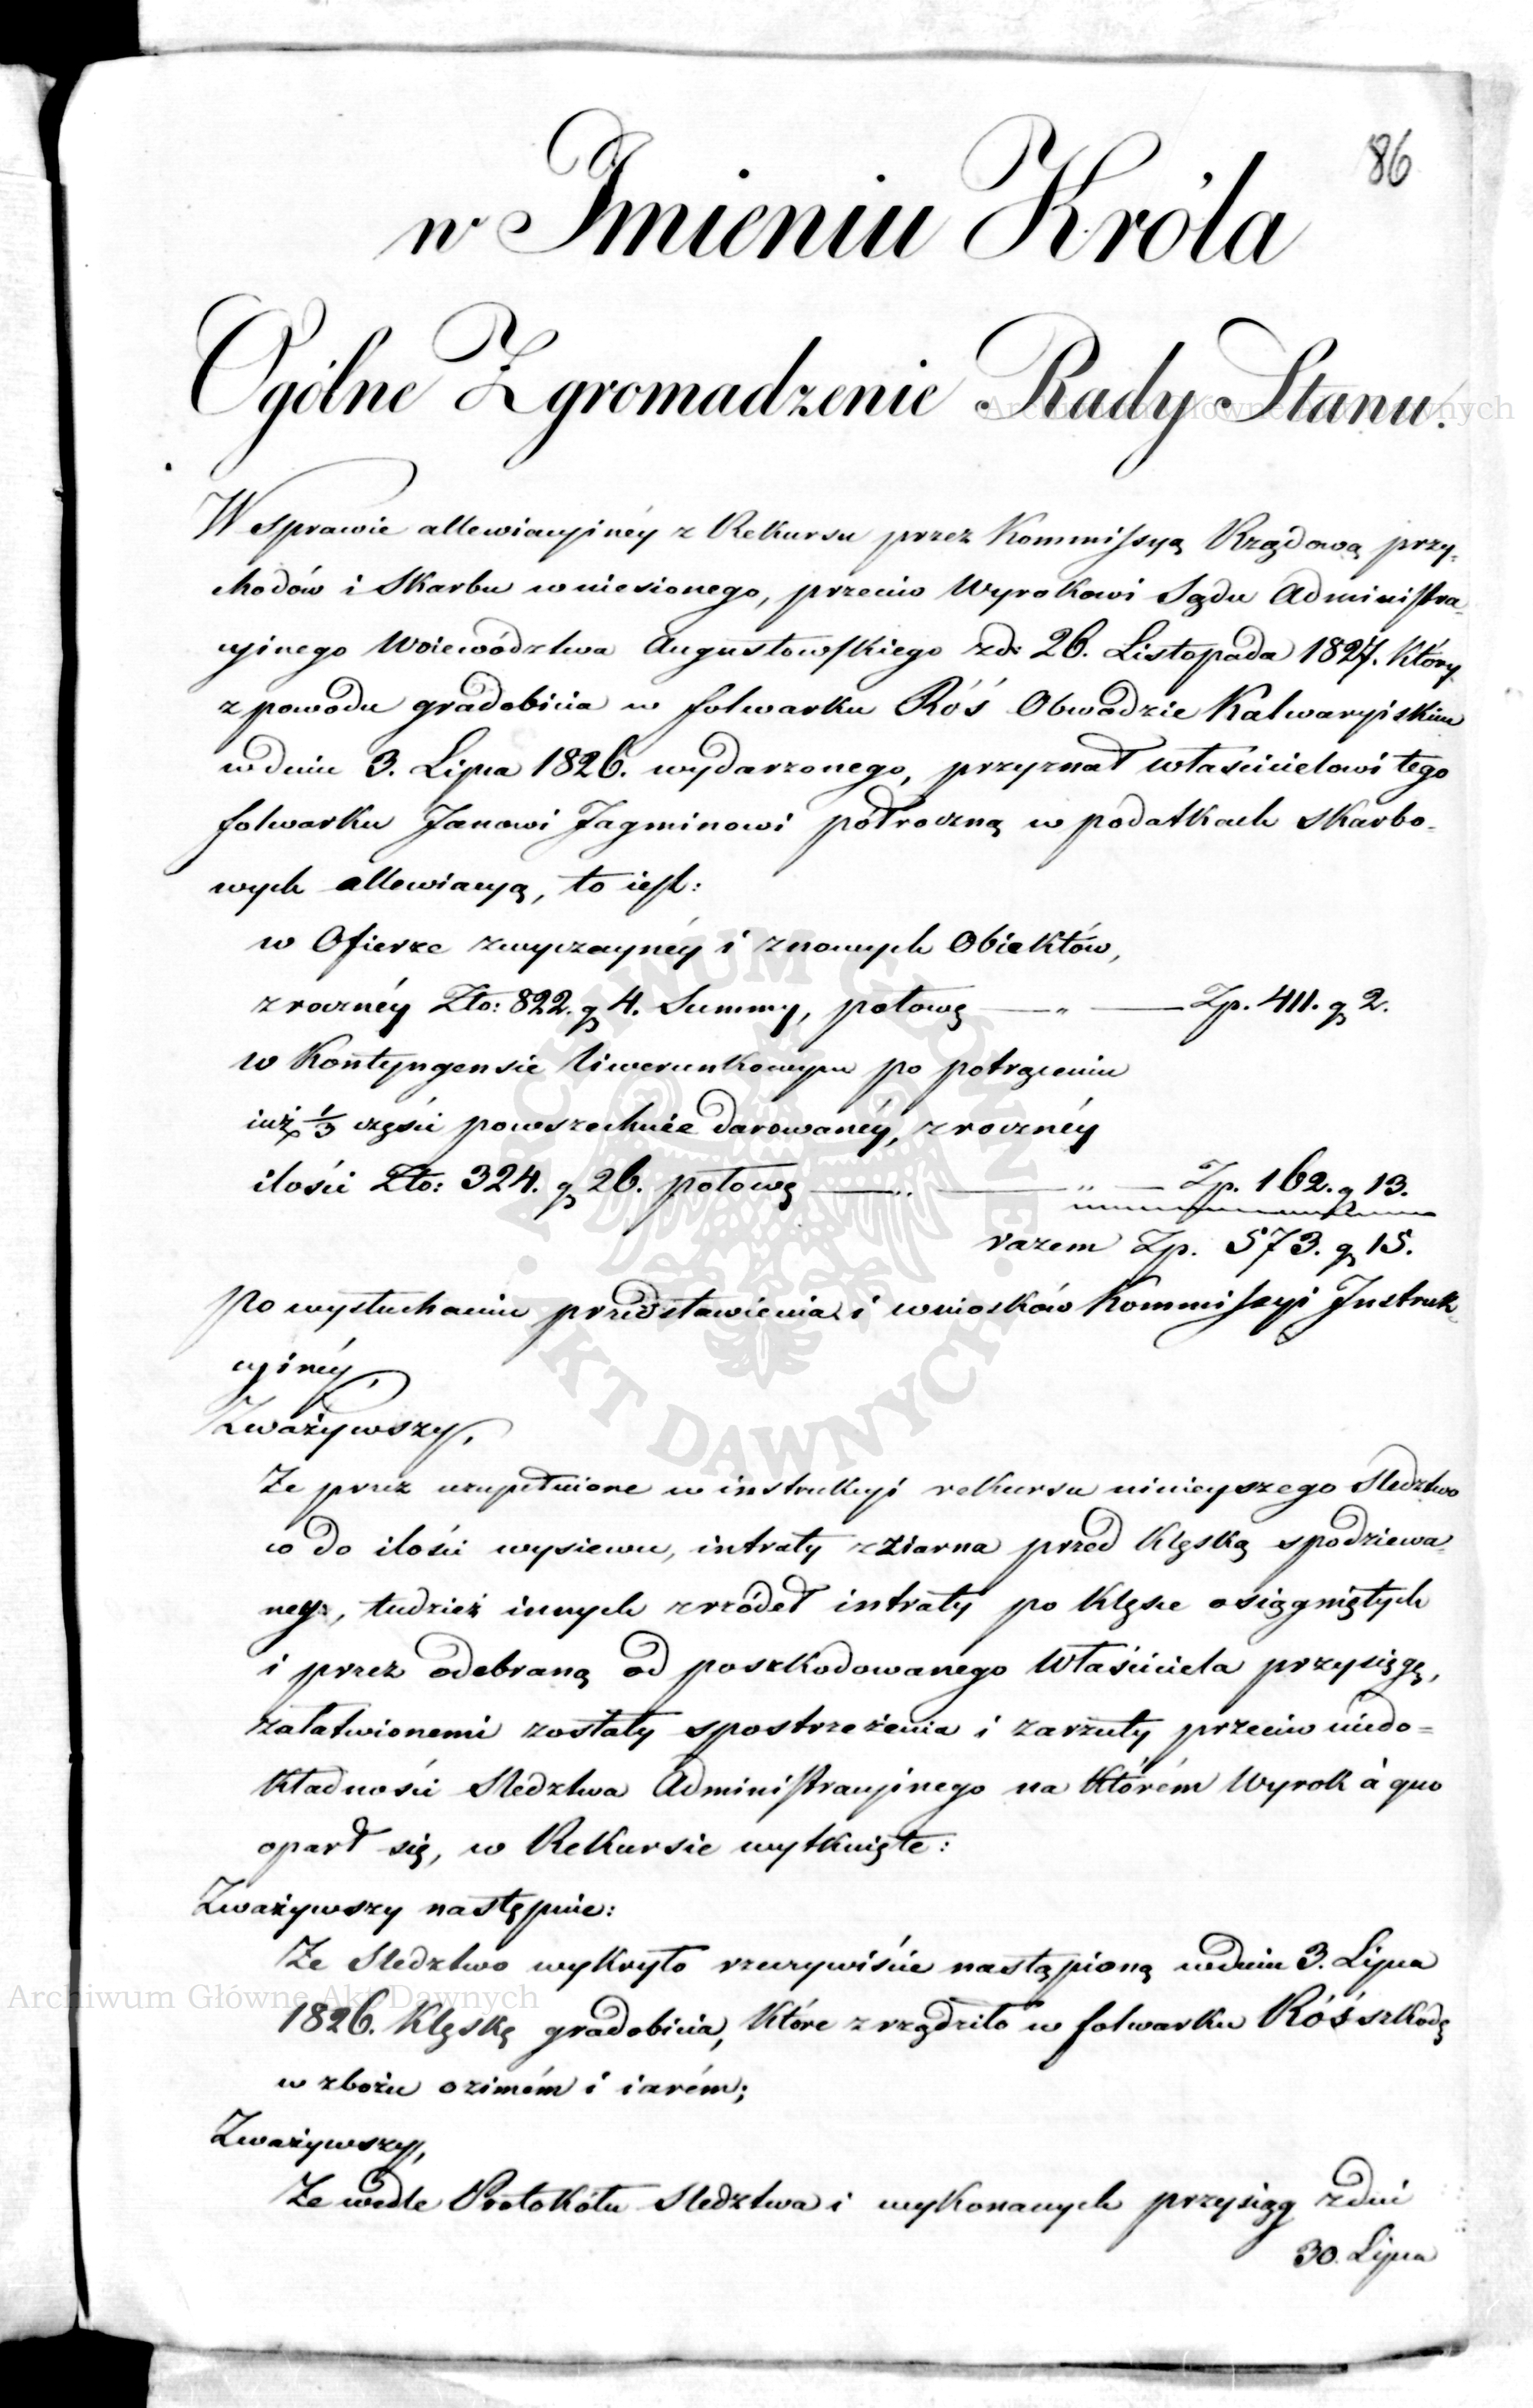 86
w Imieniu Króla
Ogólne Zgromadzenie Rady Stanu.
W sprawie allewiacyinéy z Rekursu przez Kommissyą Rządową przy-
chodów i Skarbu wniesionego, przeciw Wyrokowi Sądu Administra-
cyinego Woiewództwa Augustowskiego zd: 26. Listopada 1827. który
z powodu gradobicia w folwarku Róś Obwodzie Kalwaryiskim
w dniu 3. Lipca 1826. wydarzonego, przyznał właścicielowi tego
folwarku Janowi Jagminowi półroczną w podatkach skarbo-
wych allewiacyą, to iest:
w Ofierze zwyczaynéy i znowych Obiektów,
z rocznéy Zło: 822. g 4. Summy, połowę — „ — Zp. 411. g 2.
w Kontyngensie liwerunkowym po potrąceniu
iuż 1/3 części powszechnie darowanéy, z rocznéy
ilości Zło: 324. g 26. połowę — „ — „ — Zp. 162. g 13.
razem Zp. 573. g 15.
po wysłuchaniu przedstawienia i wniosków Kommissyi Instruk-
cyinéy,
Zważywszy,
Że przez uzupełnione w instrukcyi rekursu ninieyszego śledztwo
co do ilości wysiewu, intraty z ziarna przed klęską spodziewa-
ney, tudzież innych zrzódeł intraty po klęsce osiągniętych
i przez odebraną od poszkodowanego Właściciela przysięgę,
załatwionemi zostały spostrzeżenia i zarzuty przeciw niedo-
kładności śledztwa Administracyinego na którém Wyrok à quo
oparł się, w Rekursie wytknięte:
Zważywszy następnie:
Że śledztwo wykryło rzeczywiście nastąpioną w dniu 3. Lipca
1826. klęskę gradobicia, które zrządziło w folwarku Róś szkodę
w zbożu ozimém i iarém;
Zważywszy,
Że wedle Protokółu śledztwa i wykonanych przysiąg z dni
30. Lipca
Archiwum Główne Akt Dawnych
Archiwum Główne Akt Dawnych
ARCHIWUM GŁÓWNE · AKT DAWNYCH ·